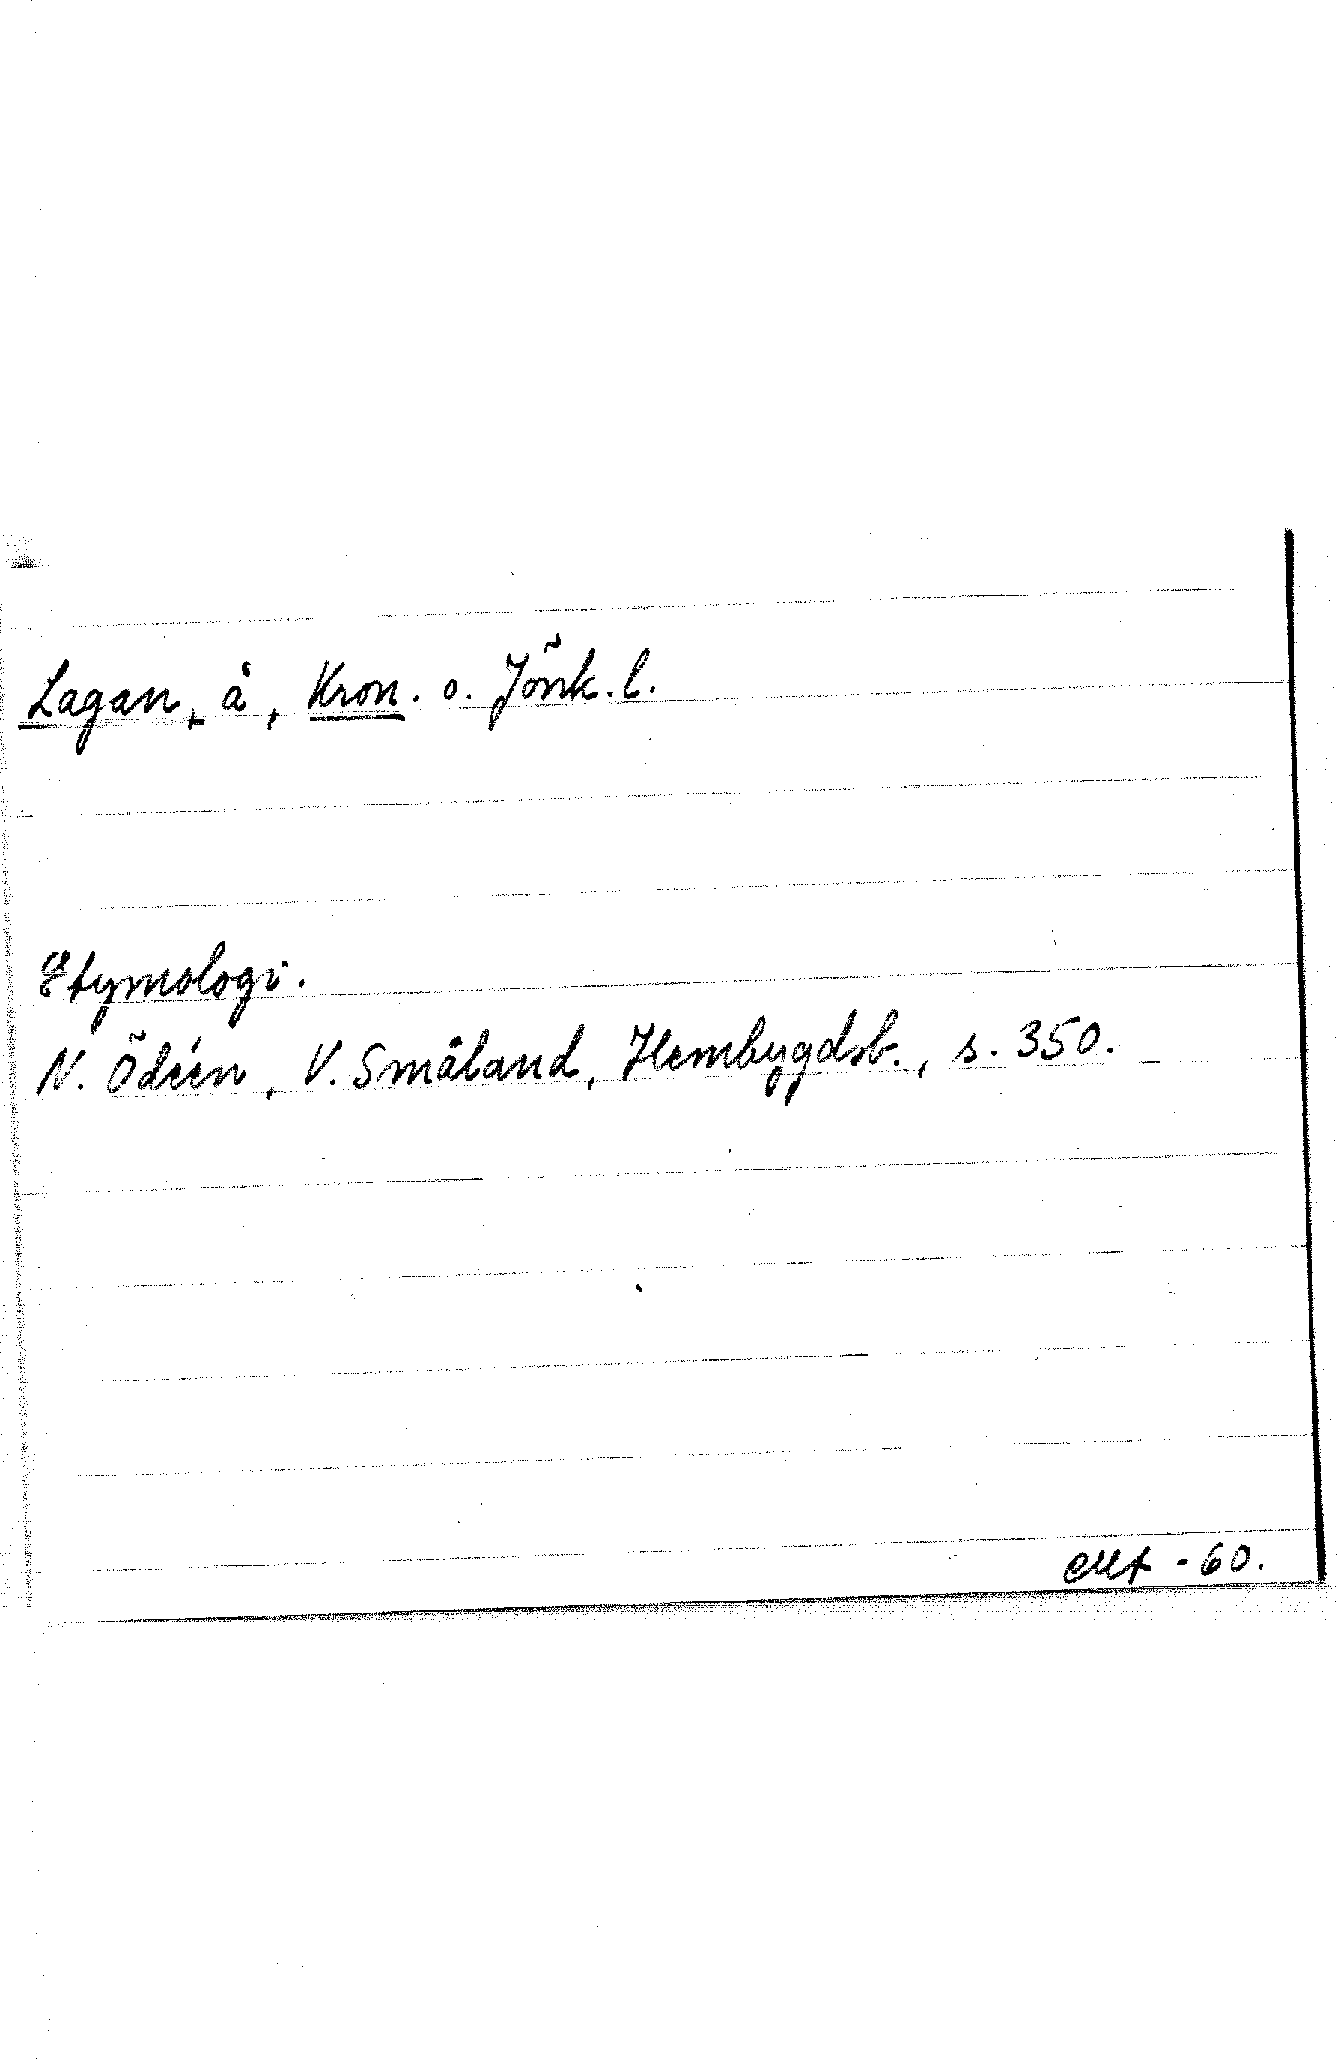 Lagan, å, Kron. o. Jönk. l.
Etymologi.
N. Ödéen, V. Småland, Hembygdsb., s. 350. –
-60.